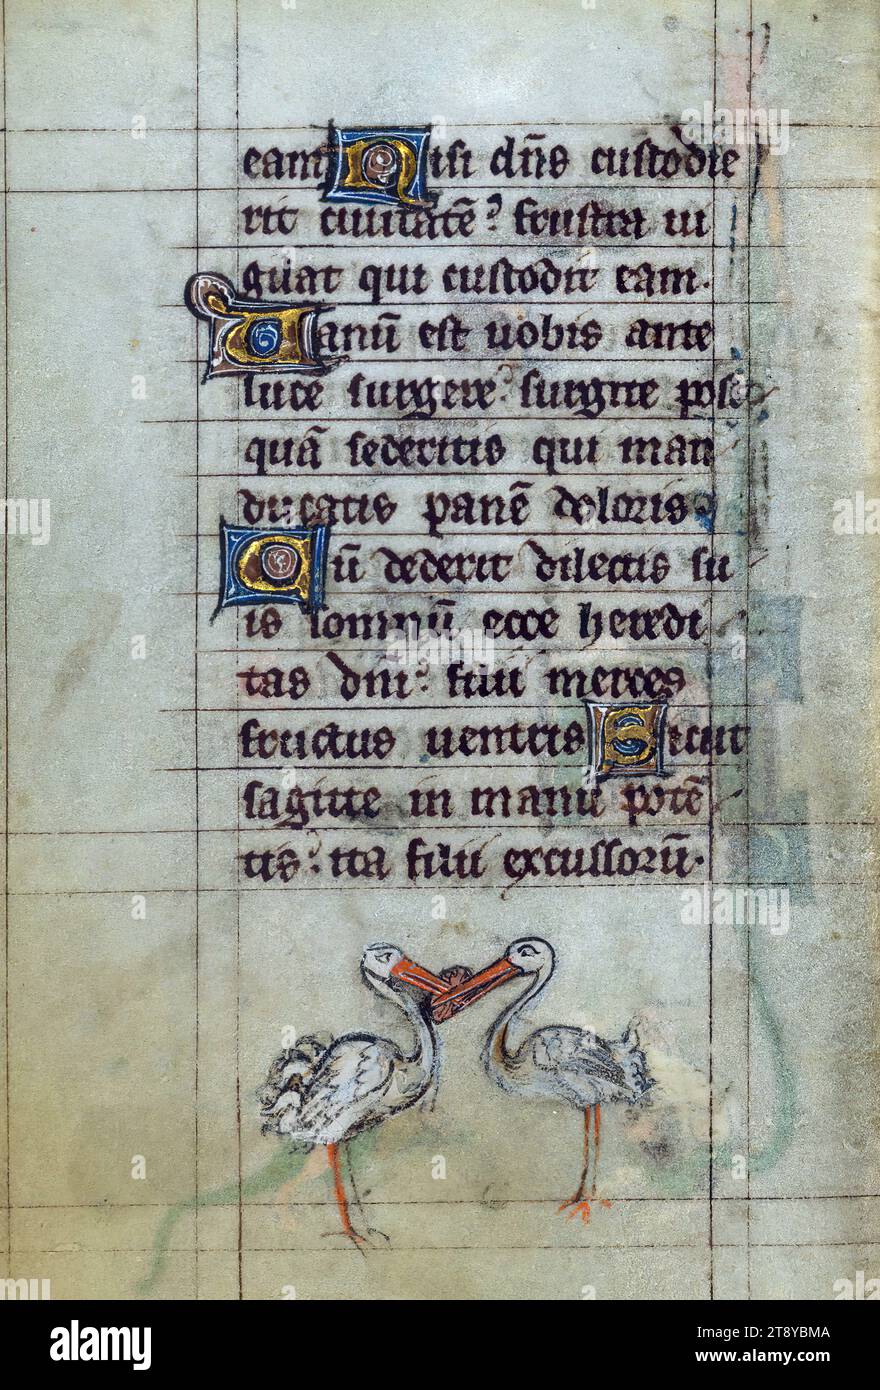 eam Nisi dn̄s custodie
rit ciuitatē? frustra ui
gilat qui custodit eam.
Uanū est uobis ante
lucē surgere? surgite post
quā sederitis qui man
ducatis panē doloris.
Cū dederit dilectis su
is somnū ecce heredi
tas dn̄i? filii merces
fructus uentris Sicut
sagitte in manu potē
tis? ita filii excussorū.
alamy
alamy
Image ID: 2T8YBMA
www.alamy.com